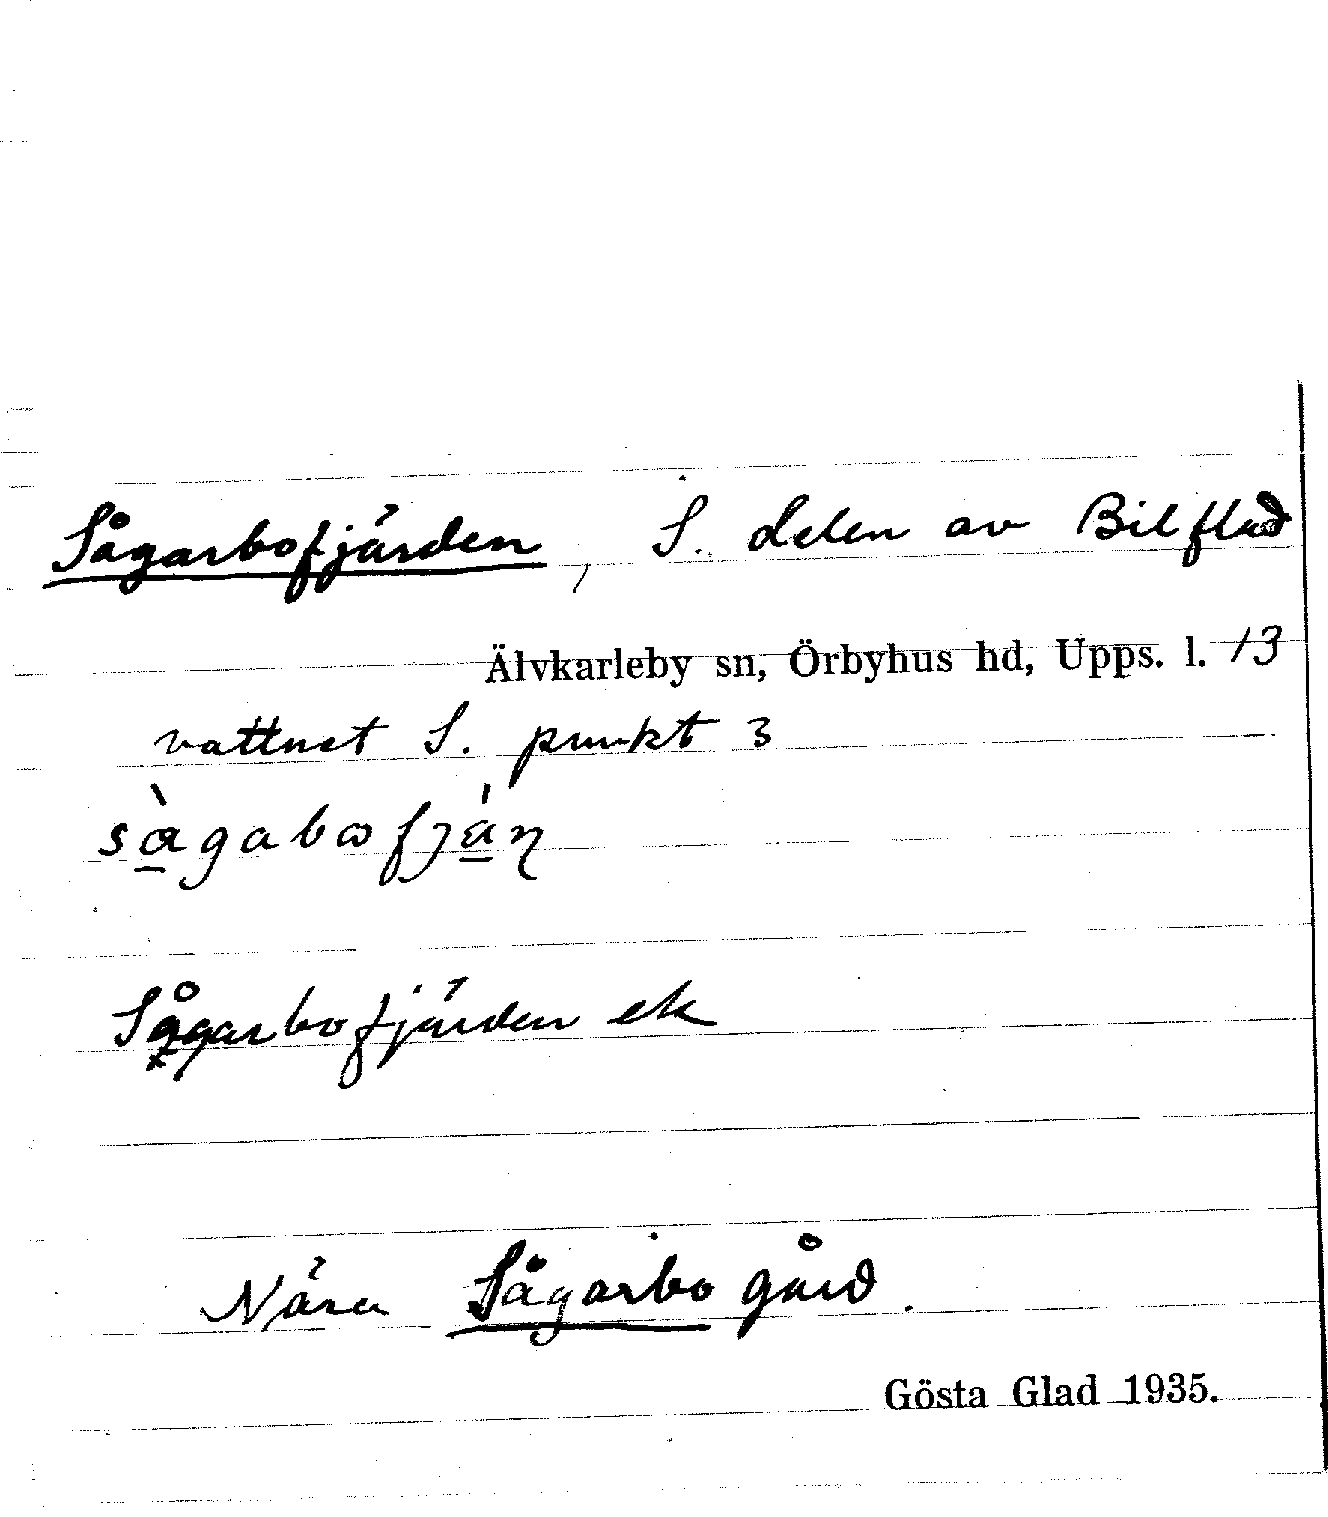 Sågarbofjärden, S. delen av Bilflad
Älvkarleby sn, Örbyhus hd, Upps. l. 13
vattnet S. punkt 3
sàgabωfjáɳ
Sågarbofjärden ek
Nära Sågarbo gård.
Gösta Glad 1935.